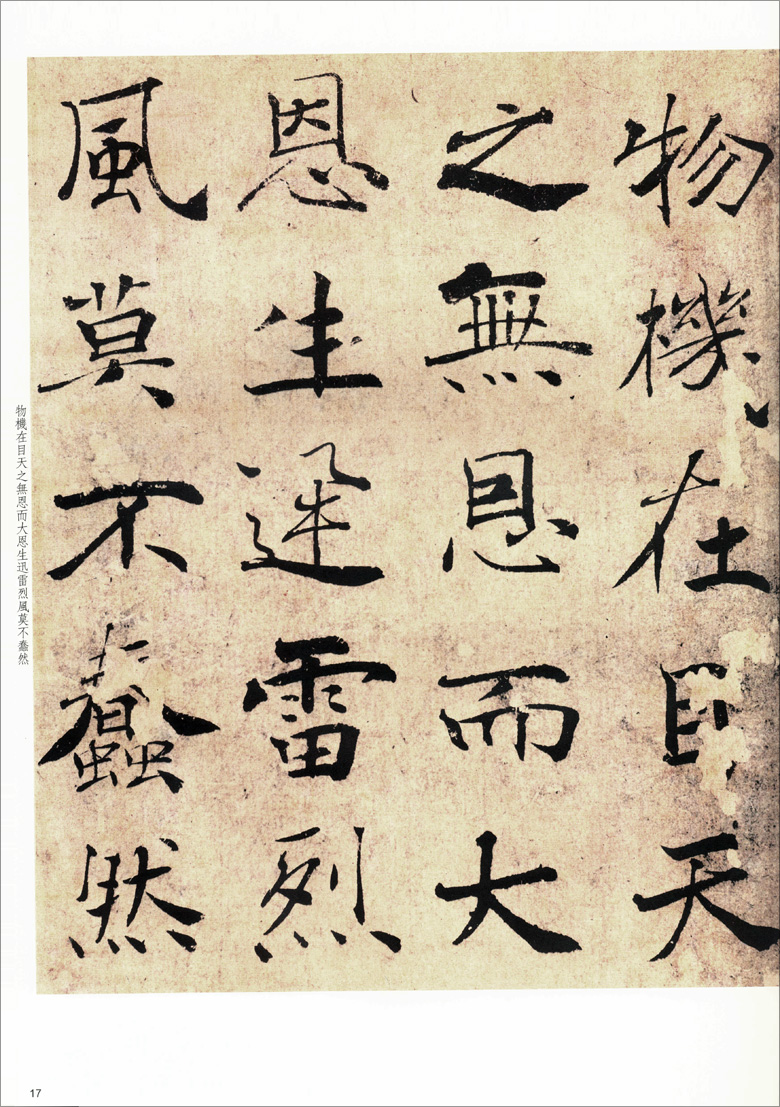 物機在目天
之無恩而大
恩生迅雷烈
風莫不蠢然
物機在目天之無恩而大恩生迅雷烈風莫不蠢然
17